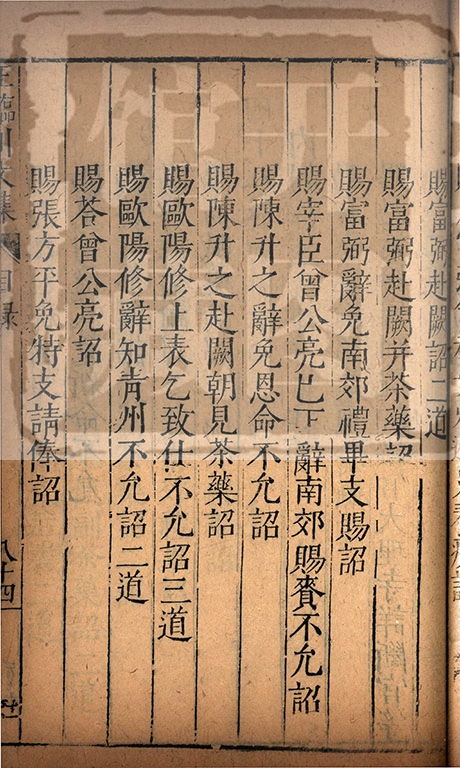 賜富弼赴闕詔二道
賜富弼赴闕并茶藥詔
賜富弼辭免南郊禮畢支賜詔
賜宰臣曾公亮已下辭南郊賜賚不允詔
賜陳升之辭免恩命不允詔
賜陳升之赴闕朝見茶藥詔
賜歐陽修上表乞致仕不允詔三道
賜歐陽修辭知青州不允詔二道
賜荅曾公亮詔
賜張方平免特支請俸詔
王臨川文集 目録 八十四